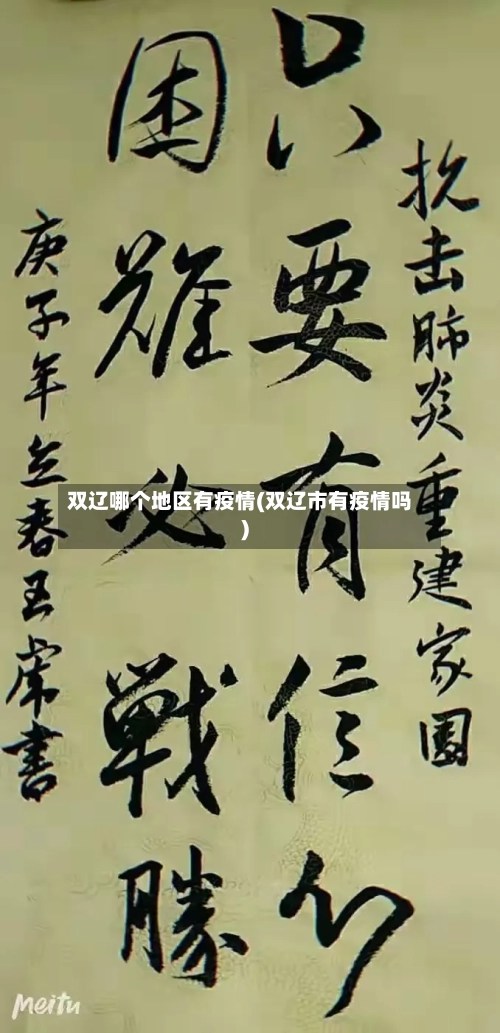 抗击肺炎重建家園
只要有信心
困難必戰勝
庚子年立春王常書
双辽哪个地区有疫情(双辽市有疫情吗
)
Meitu